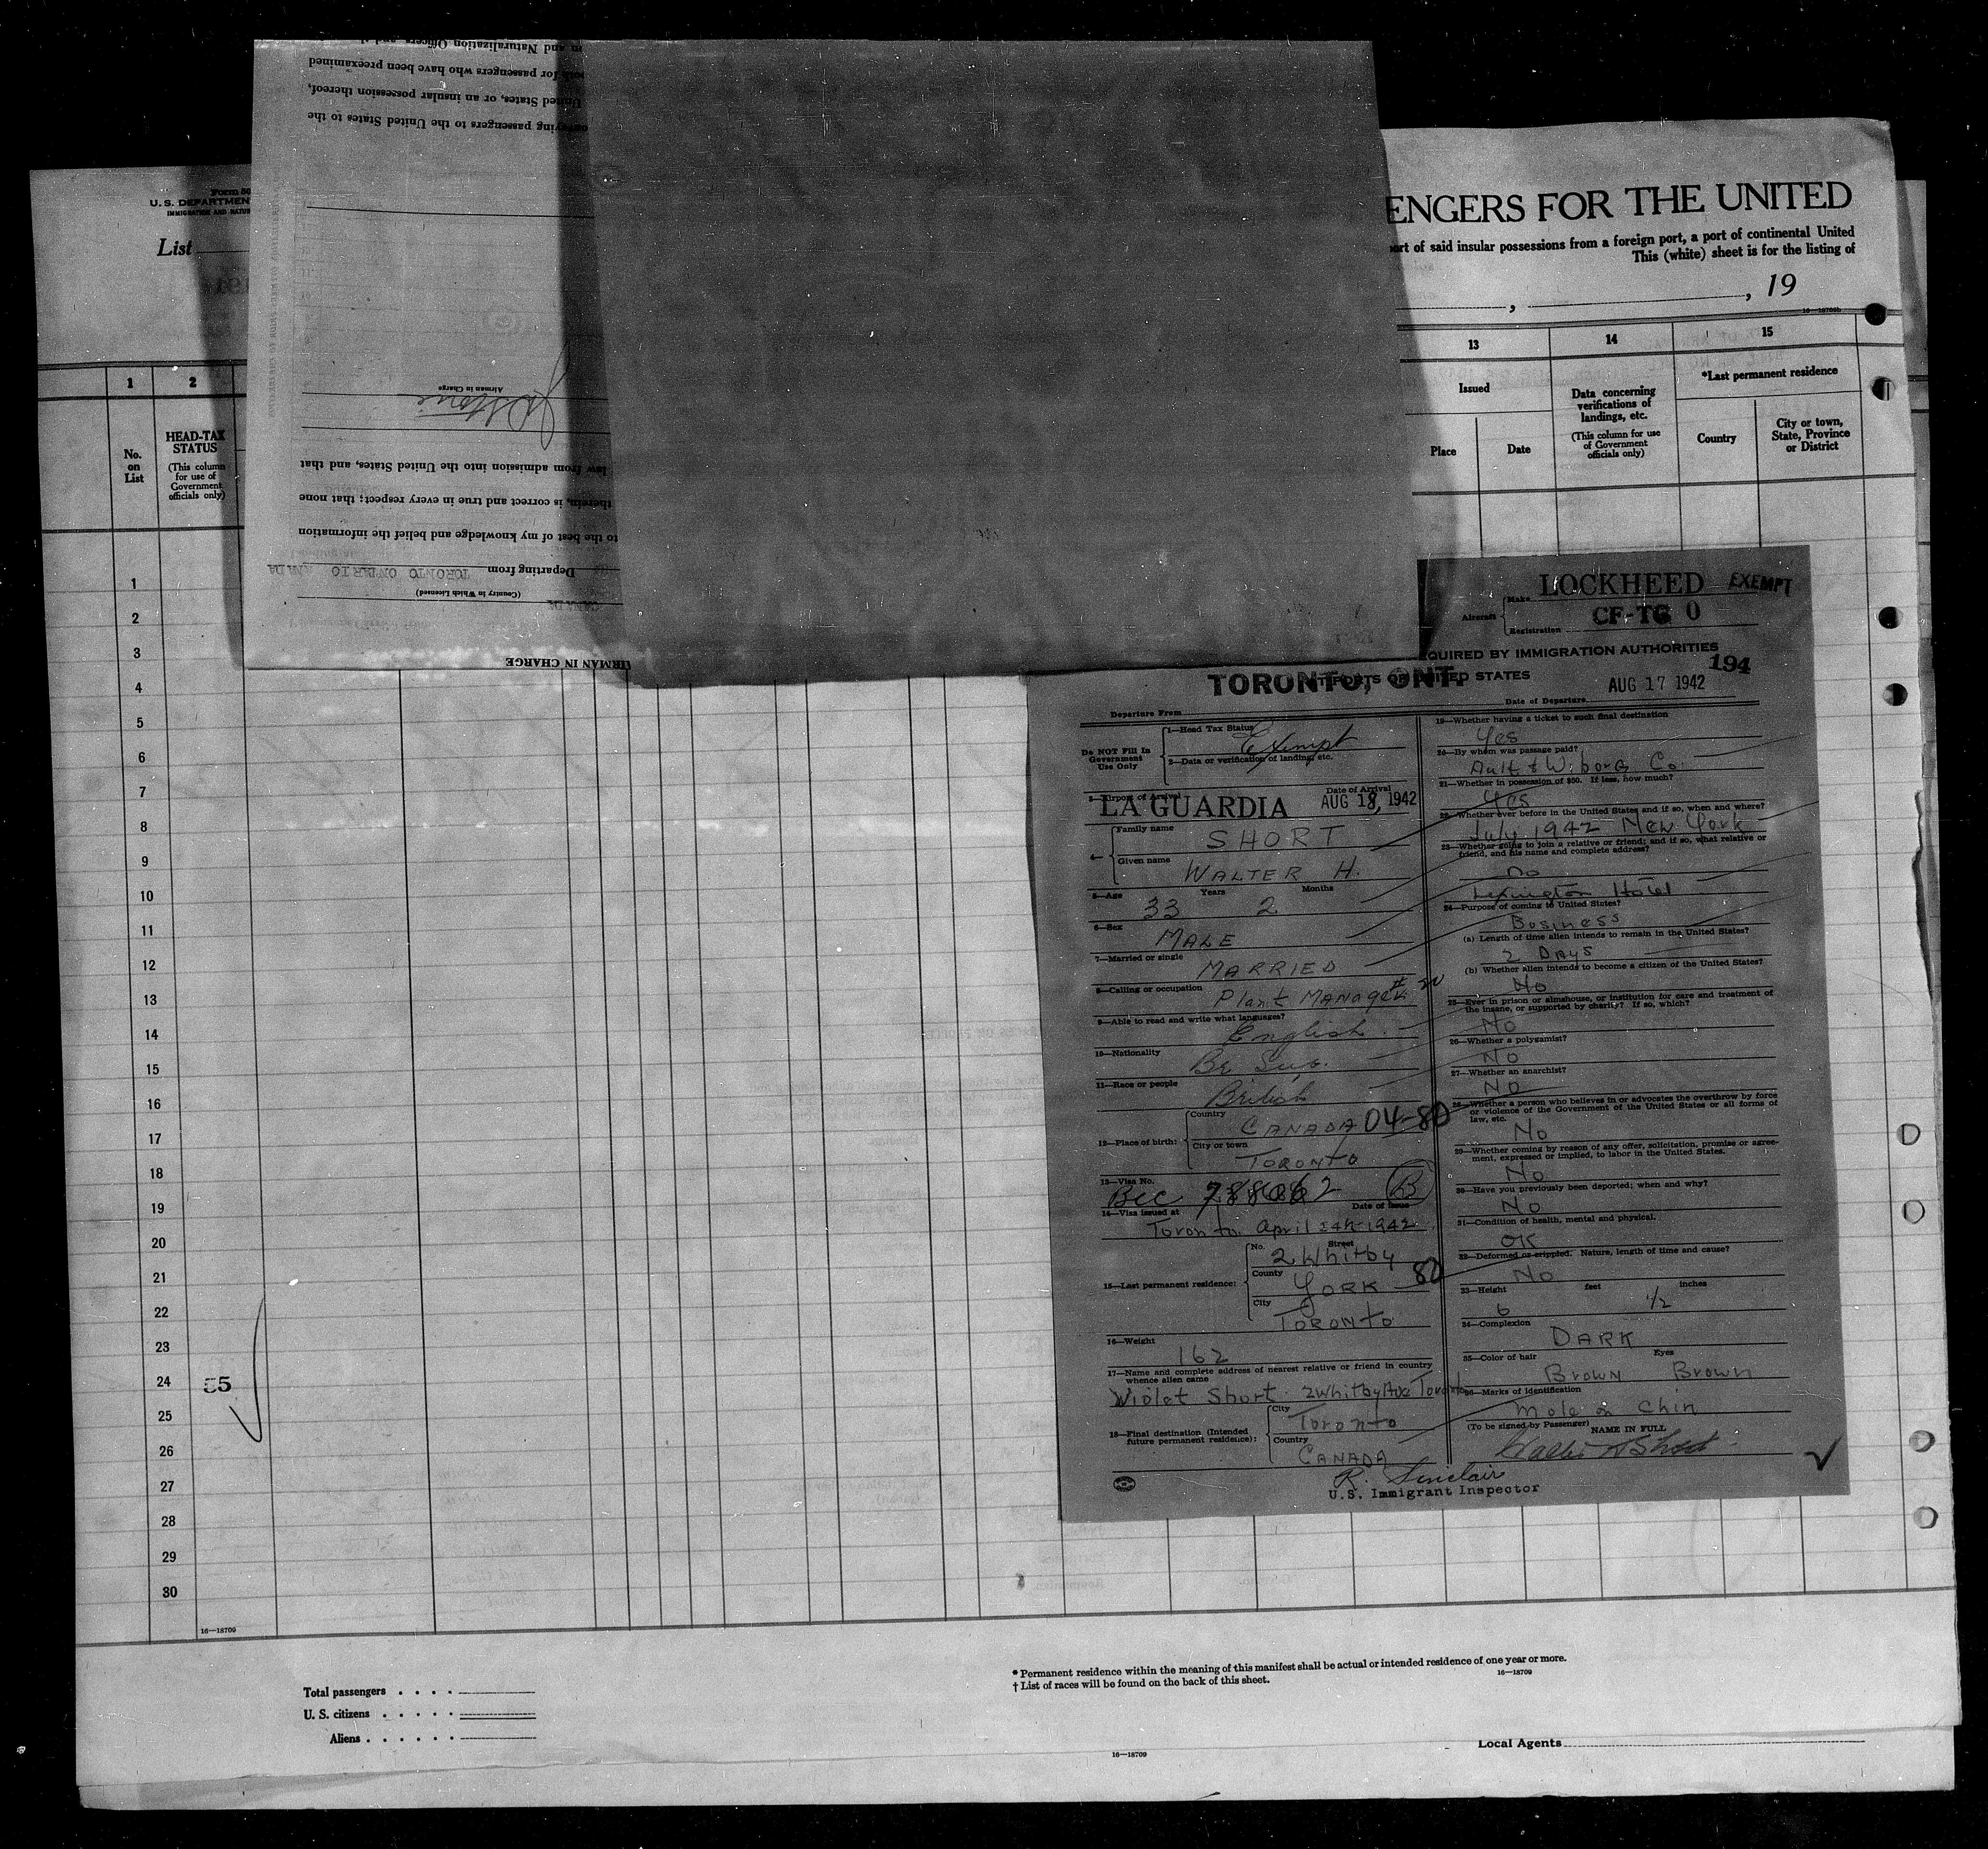 Form 50
U. S. DEPARTMEN
IMMIGRATION AND NATUR
List
in and Naturalization Officers and
for passengers who have been preexamined
United States, or an insular possession thereof,
passengers to the United States to the
Airman in Charge
law from admission into the United States, and that
therein, is correct and true in every respect; that none
to the best of my knowledge and belief the information
Departing from TORONTO ONTARIO CANADA
(Country in Which Licensed)
CANADA
AIRMAN IN CHARGE
ENGERS FOR THE UNITED
ort of said insular possessions from a foreign port, a port of continental United
This (white) sheet is for the listing of
, , 19
16—18709b
1 2 13 14 15
No. on List
HEAD-TAX STATUS
(This column for use of Government officials only)
Issued
Place Date
Data concerning verifications of landings, etc.
(This column for use of Government officials only)
*Last permanent residence
Country
City or town, State, Province or District
1
2
3
4
5
6
7
8
9
10
11
12
13
14
15
16
17
18
19
20
21
22
23
24 55
25
26
27
28
29
30
16—18709
Aircraft Make LOCKHEED EXEMPT
Registration CF-TC O
QUIRED BY IMMIGRATION AUTHORITIES
194
T PORTS OF UNITED STATES
TORONTO, ONT.
AUG 17 1942
Departure From
Date of Departure
Do NOT Fill In Government Use Only
1—Head Tax Status Exempt
2—Data or verification of landing, etc.
3—Airport of Arrival LA GUARDIA
Date of Arrival AUG 18, 1942
4— Family name SHORT
Given name WALTER H.
5—Age 33 Years 2 Months
6—Sex MALE
7—Married or single MARRIED
8—Calling or occupation Plant MANAGER
9—Able to read and write what languages? English
10—Nationality Br Sub.
11—Race or people British
12—Place of birth: Country CANADA 04-80
City or town TORONTO
13—Visa No. Bcc B
14—Visa issued at Date of Issue
Toronto April 24th 1942
15—Last permanent residence: No. Street 2 Whitby
County YORK 80
City TORONTO
16—Weight 162
17—Name and complete address of nearest relative or friend in country whence alien came
Violet Short 2 Whitby Ave Toronto
18—Final destination (Intended future permanent residence): City Toronto
Country CANADA
19—Whether having a ticket to such final destination
Yes
20—By whom was passage paid?
Ault & Wiborg Co.
21—Whether in possession of $50. If less, how much?
Yes
22—Whether ever before in the United States and if so, when and where?
July 1942 New York
23—Whether going to join a relative or friend; and if so, what relative or friend, and his name and complete address?
No
Lexington Hotel
24—Purpose of coming to United States?
Business
(a) Length of time alien intends to remain in the United States?
2 Days
(b) Whether alien intends to become a citizen of the United States?
No
25—Ever in prison or almshouse, or institution for care and treatment of the insane, or supported by charity? If so, which?
No
26—Whether a polygamist?
No
27—Whether an anarchist?
No
28—Whether a person who believes in or advocates the overthrow by force or violence of the Government of the United States or all forms of law, etc.
No
29—Whether coming by reason of any offer, solicitation, promise or agreement, expressed or implied, to labor in the United States.
No
30—Have you previously been deported; when and why?
No
31—Condition of health, mental and physical.
OK
32—Deformed or crippled. Nature, length of time and cause?
No
33—Height 6 feet 1/2 inches
34—Complexion DARK
35—Color of hair Brown Eyes Brown
36—Marks of identification
Mole on Chin
(To be signed by Passenger) NAME IN FULL
Walter H Short
R. Sinclair
U.S. Immigrant Inspector
* Permanent residence within the meaning of this manifest shall be actual or intended residence of one year or more.
† List of races will be found on the back of this sheet.
16—18709
Total passengers . . . .
U. S. citizens . . . . .
Aliens . . . . . .
16—18709
Local Agents